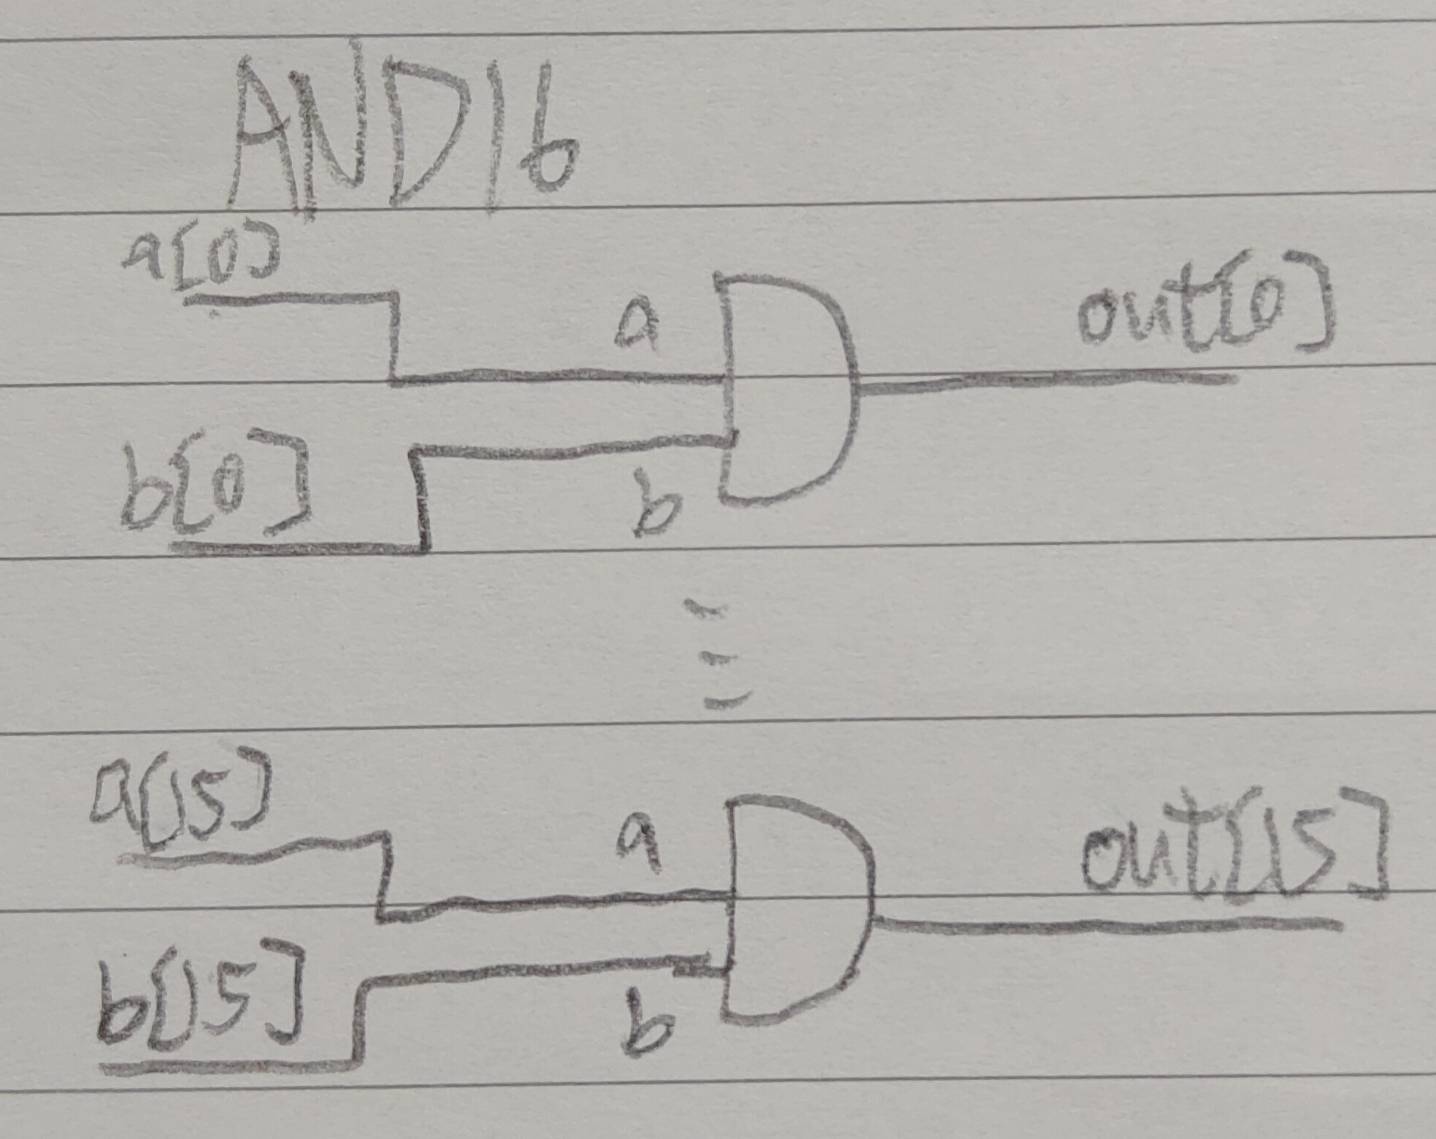 AND16
a[0]
a
out[0]
b[0]
b
a[15]
a
out[15]
b[15]
b